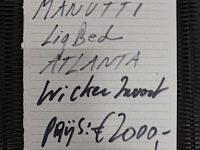 MANUTTI
Lig Bed
ATLANTA
Wicker
prijs: € 2000,-